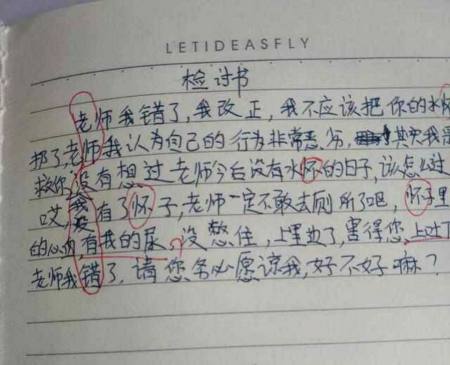 LETIDEASFLY
检讨书
老师我错了，我改正，我不应该把你的水怀
挪了，老师我认为自己的行为非常恶劣，其实我是
没有想过老师今后没有水怀的日子，该怎么过
哎 有了怀子，老师一定不敢去厕所了吧，怀子里
的 有我的尿，没憋住，上里边了，害得您，上吐下
老师我错了，请您务必愿谅我，好不好嘛？